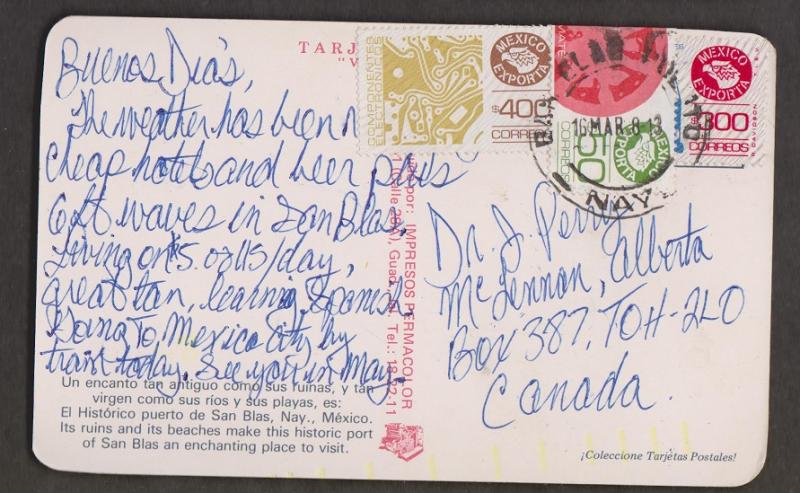 TARJ
"V
Buenos Días,
The weather has been
cheap hotels and beer plus
6 ft waves in San Blas,
Living on $5.00 US/day,
great tan, learning Spanish
Going to Mexico city by
train today. See you in May.
Un encanto tan antiguo como sus ruinas, y tan
virgen como sus ríos y sus playas, es:
El Histórico puerto de San Blas, Nay., México.
Its ruins and its beaches make this historic port
of San Blas an enchanting place to visit.
por: IMPRESOS PERMACOLOR
Guad., Jal. Tel.: 18-12-11
COMPONENTES
ELECTRONICOS
MEXICO
EXPORTA
$400
CORREOS
MEXICO
EXPORTA
50
CORREOS
MEXICO
EXPORTA
$300
CORREOS
16 MAR
NAY
Dr. J. Perry
McLennon, Alberta
Box 387, TOH-2LO
Canada.
¡Coleccione Tarjetas Postales!